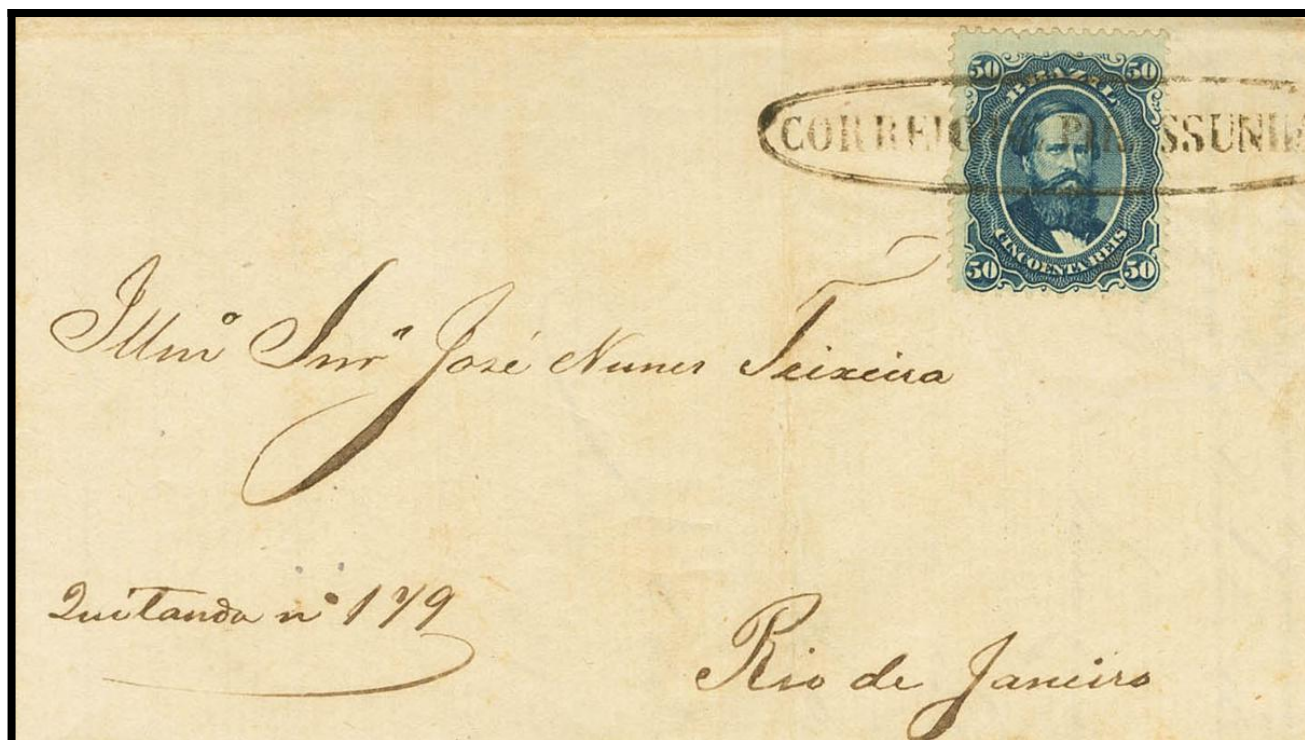 50 BRAZIL 50
CORREIO
CINCOENTA REIS
50 50
Illmº Snrº José Nunes Teixeira
Quitanda nº 179
Rio de Janeiro